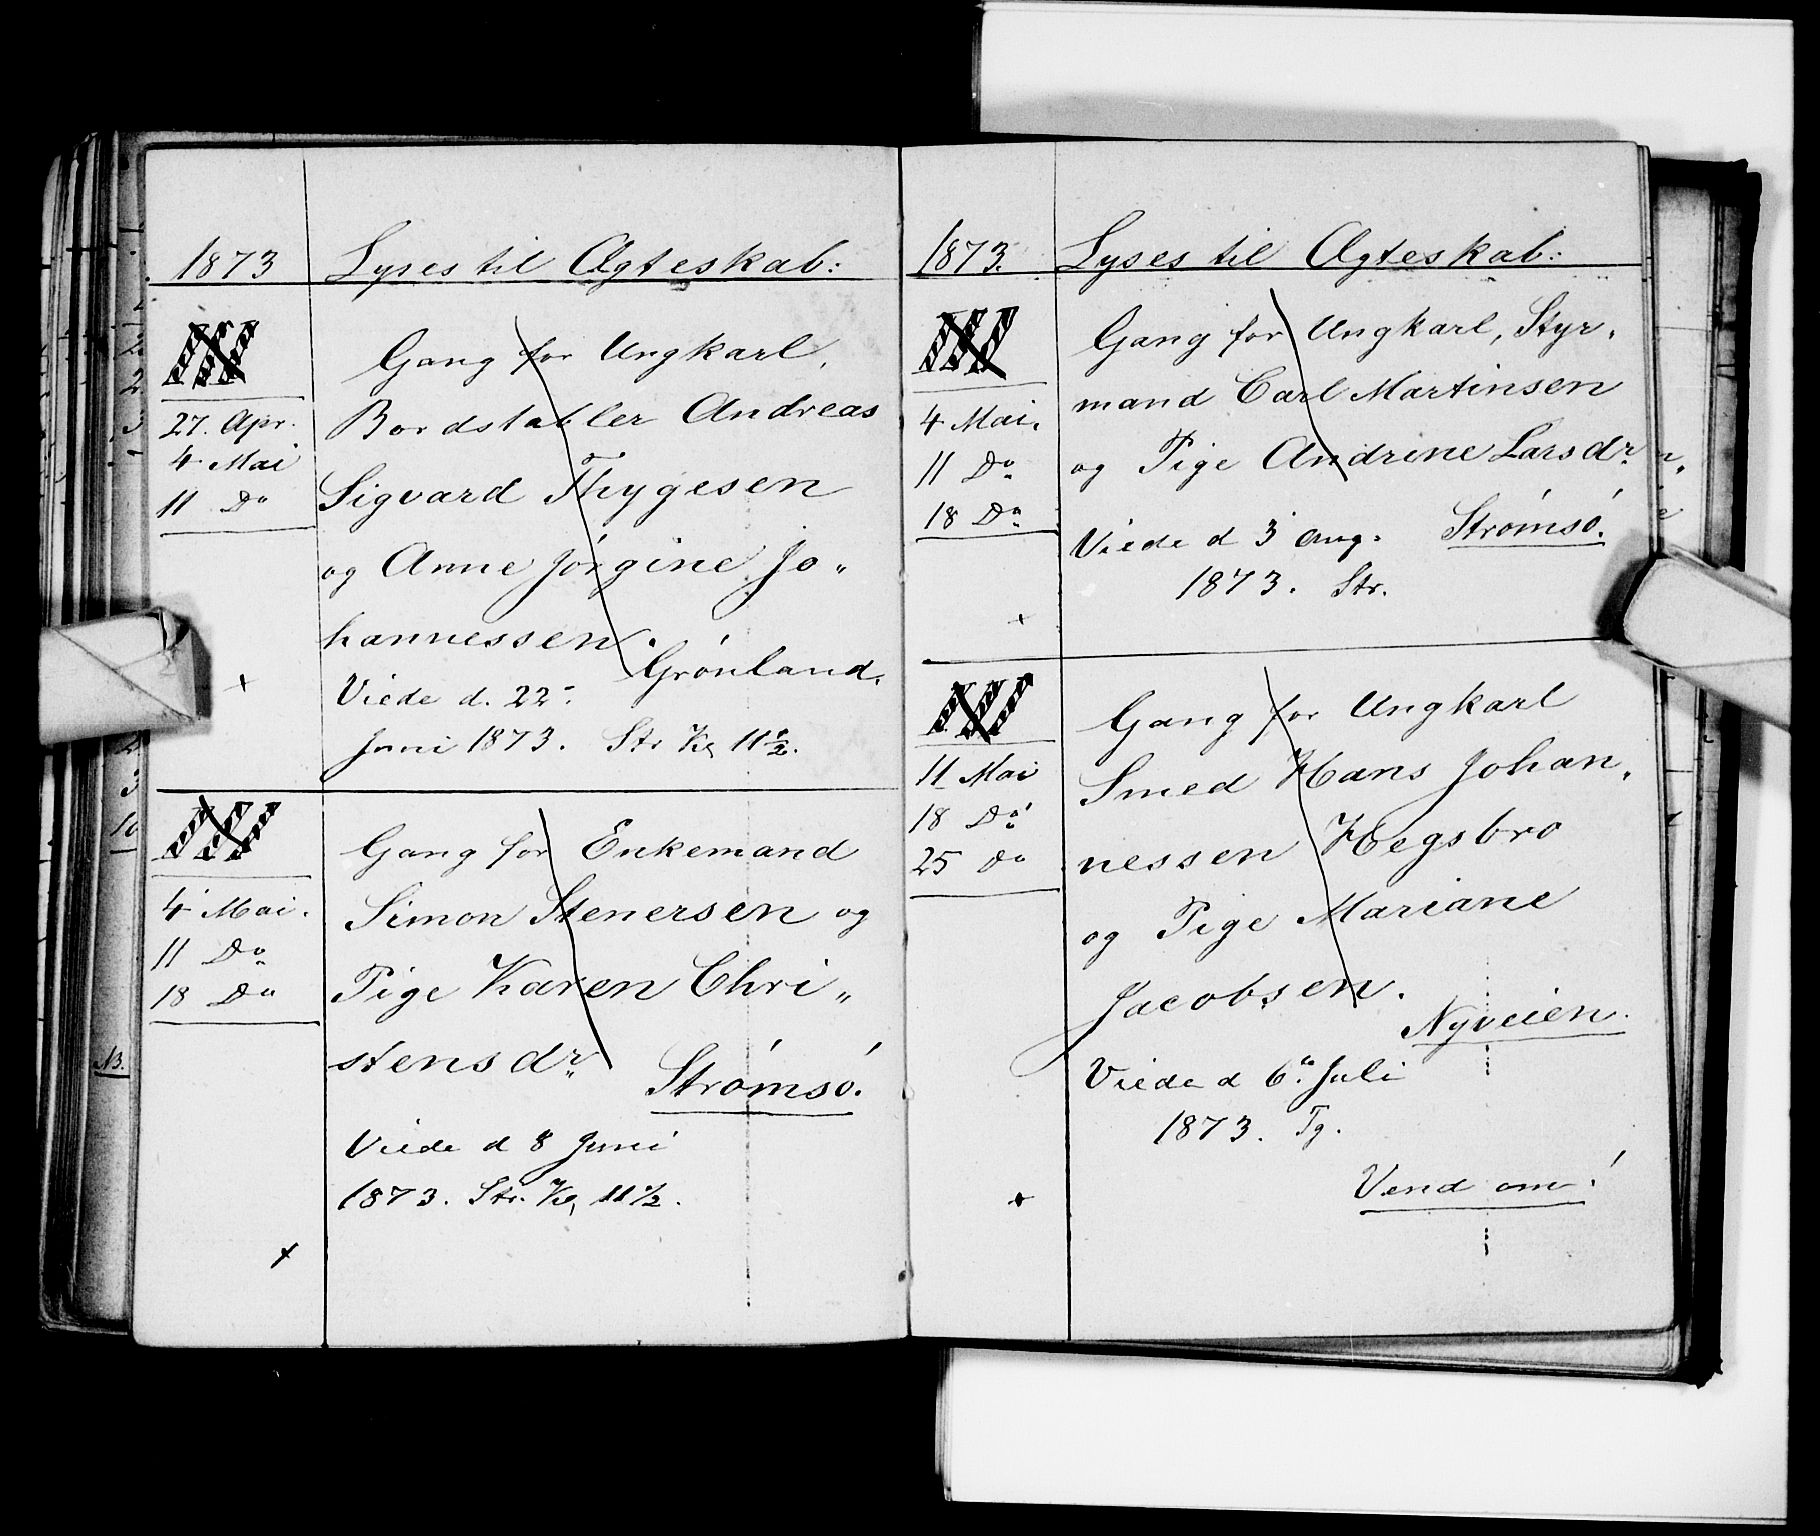 1873
Lyses til Ægteskab:
III
27. Apr.
4 Mai
11 Do
Gang for Ungkarl,
Bordstabler Andreas
Sigvard Thygesen
og Anne Jørgine Jo„
hannessen.
Grønland.
Viede d. 22
Juni 1873. Str Kg 11½.
III
4 Mai.
11 Do
18 Do
Gang for Enkemand
Simon Stenersen og
Pige Karen Chri„
stensdr.
Strømsø.
Viede d 8 Juni
1873. Str. Kg 11½.
NB.
1873.
Lyses til Ægteskab:
III
4 Mai.
11 Do
18 Do
Gang for Ungkarl, Styr„
mand Carl Martinsen
og Pige Andrine Larsdr.
Strømsø.
Viede d 3 Aug.
1873. Str.
III
11 Mai
18 Do
25 Do
Gang for Ungkarl
Smed Hans Johan„
nessen Hegsbro
og Pige Mariane
Jacobsen.
Nyveien.
Viede d 6. Juli
1873. Tg.
Vend om!